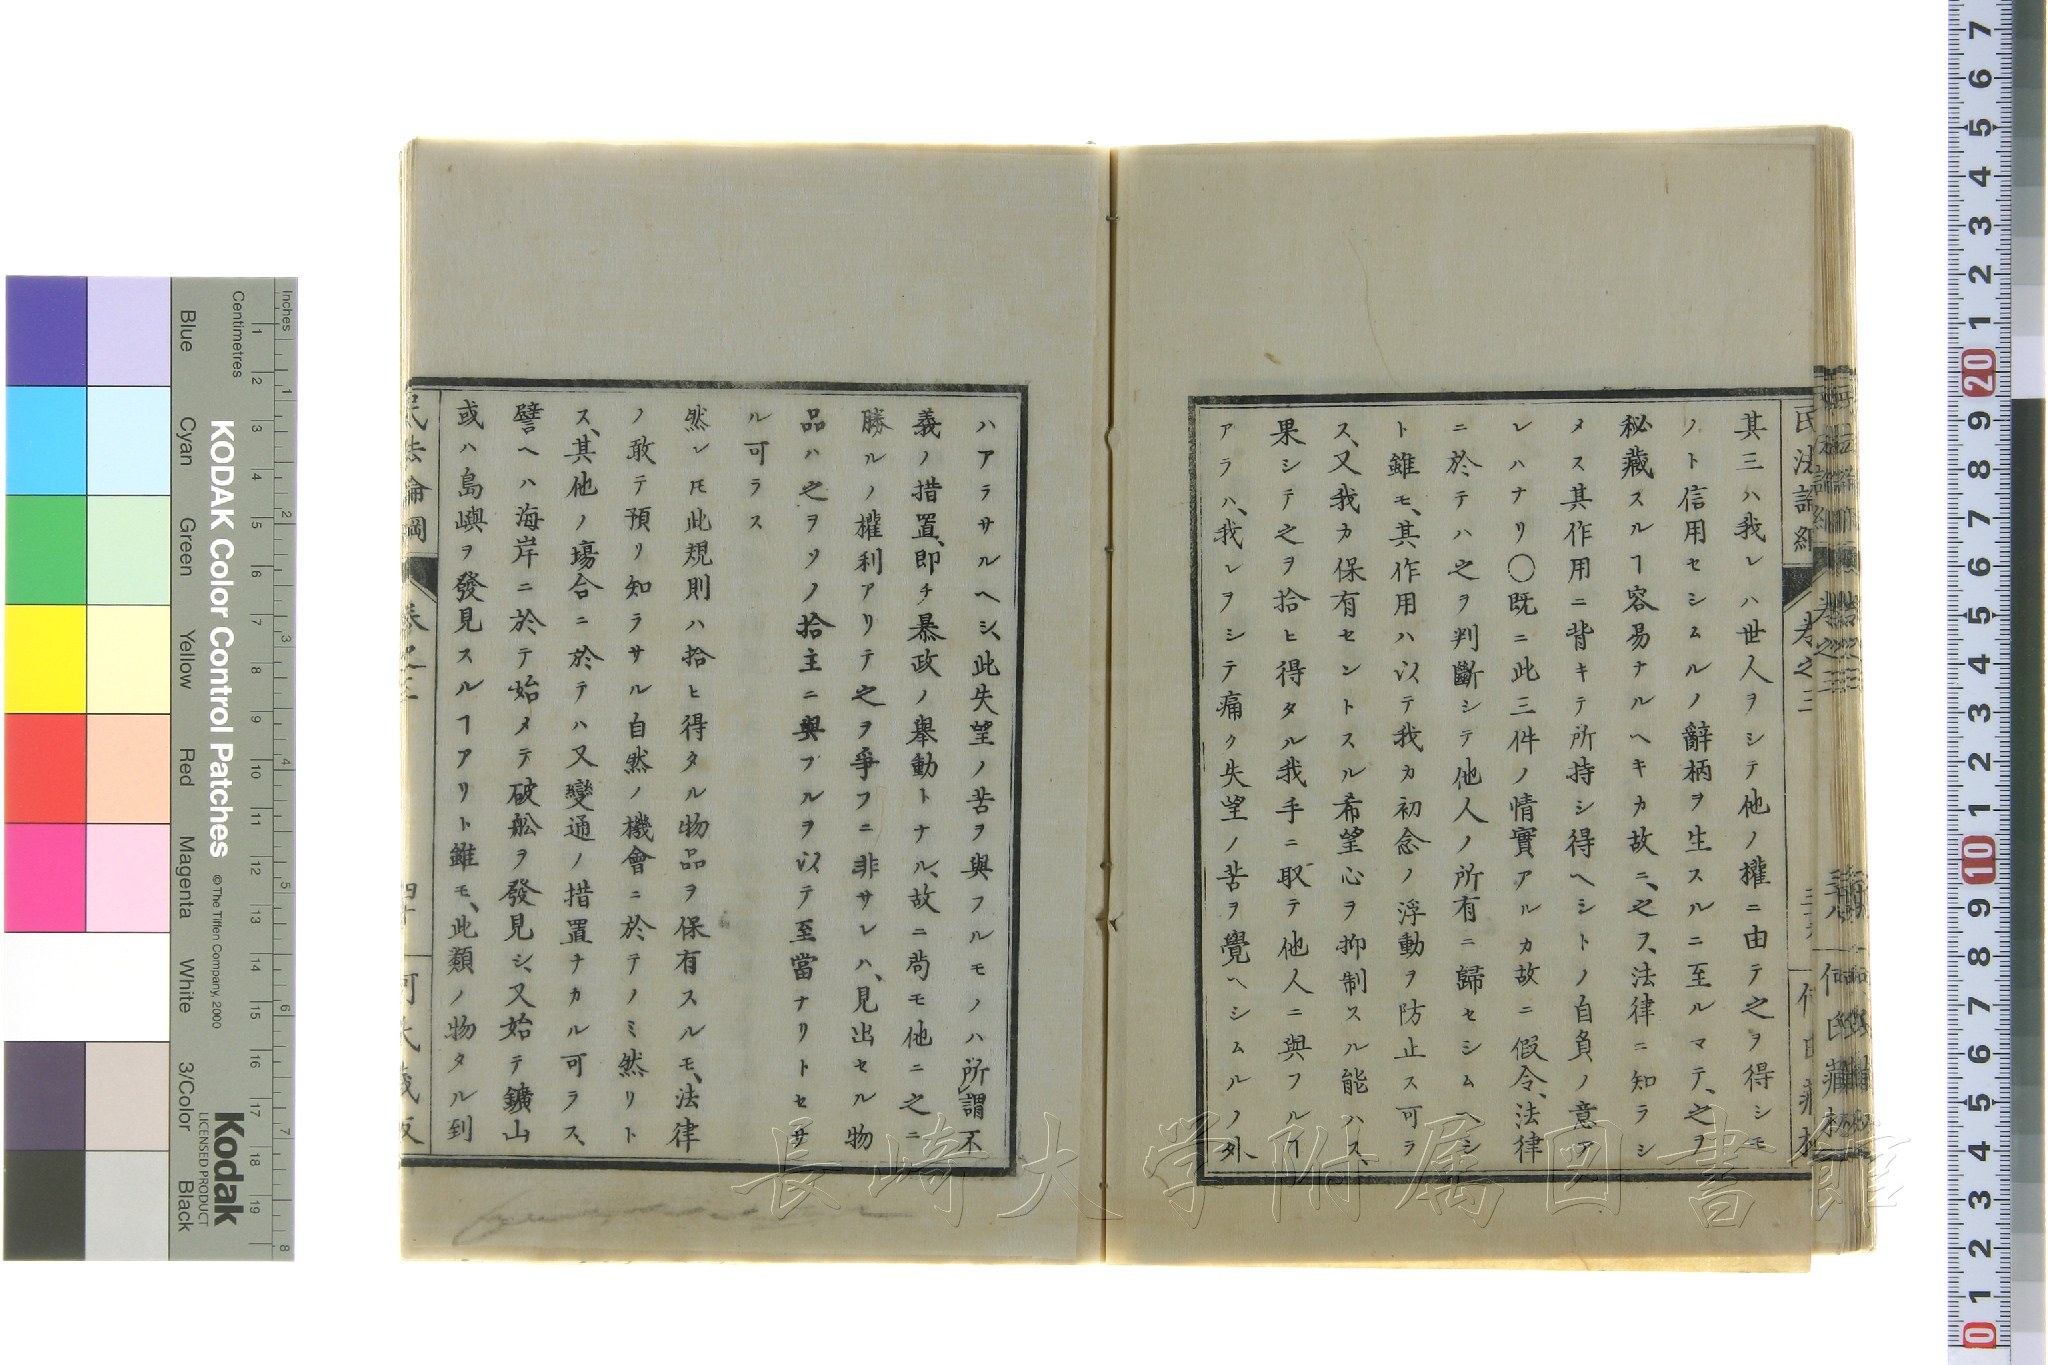 其三ハ我レハ世人ヲシテ他ノ權ニ由テ之ヲ得シモ
ノト信用セシムルノ辭柄ヲ生スルニ至ルマテ、之ヲ
秘藏スルヿ容易ナルヘキカ故ニ、之ヲ、法律ニ知ラシ
メス其作用ニ背キテ所持シ得ヘシトノ自負ノ意ア
レハナリ〇既ニ此三件ノ情實アルカ故ニ假令、法律
ニ於テハ之ヲ判斷シテ他人ノ所有ニ歸セシムヘシ
ト雖モ、其作用ハ以テ我カ初念ノ浮動ヲ防止ス可ラ
ス、又我カ保有セントスル希望心ヲ抑制スル能ハス、
果シテ之ヲ拾ヒ得タル我手ニ取テ他人ニ與フルイ
アラハ、我レヲシテ痛ク失望ノ苦ヲ覺ヘシムルノ外
ハアラサルヘシ、此失望ノ苦ヲ與フルモノハ所謂不
義ノ措置、即チ暴政ノ舉動トナル、故ニ尚モ他ニ之ニ
勝ルノ權利アリテ之ヲ爭フニ非サレハ、見出セル物
品ハ之ヲソノ拾主ニ與フルヲ以テ至當ナリトセサ
ル可ラス
然レ𪜈此規則ハ拾ヒ得タル物品ヲ保有スルモ、法律
ノ敢テ預リ知ラサル自然ノ機會ニ於テノミ然リト
ス、其他ノ塲合ニ於テハ又變通ノ措置ナカル可ラス、
譬ヘハ海岸ニ於テ始メテ破舩ヲ發見シ、又始テ鑛山
或ハ島嶼ヲ發見スルヿアリト雖モ、此類ノ物タル到
民法論綱
卷之三
四十
何氏藏版
民法論綱
卷之三
何氏藏版
長崎大学附属図書館
KODAK Color Control Patches
© The Tiffen Company, 2000
Kodak
LICENSED PRODUCT
Inches
Centimetres
Blue
Cyan
Green
Yellow
Red
Magenta
White
3/Color
Black